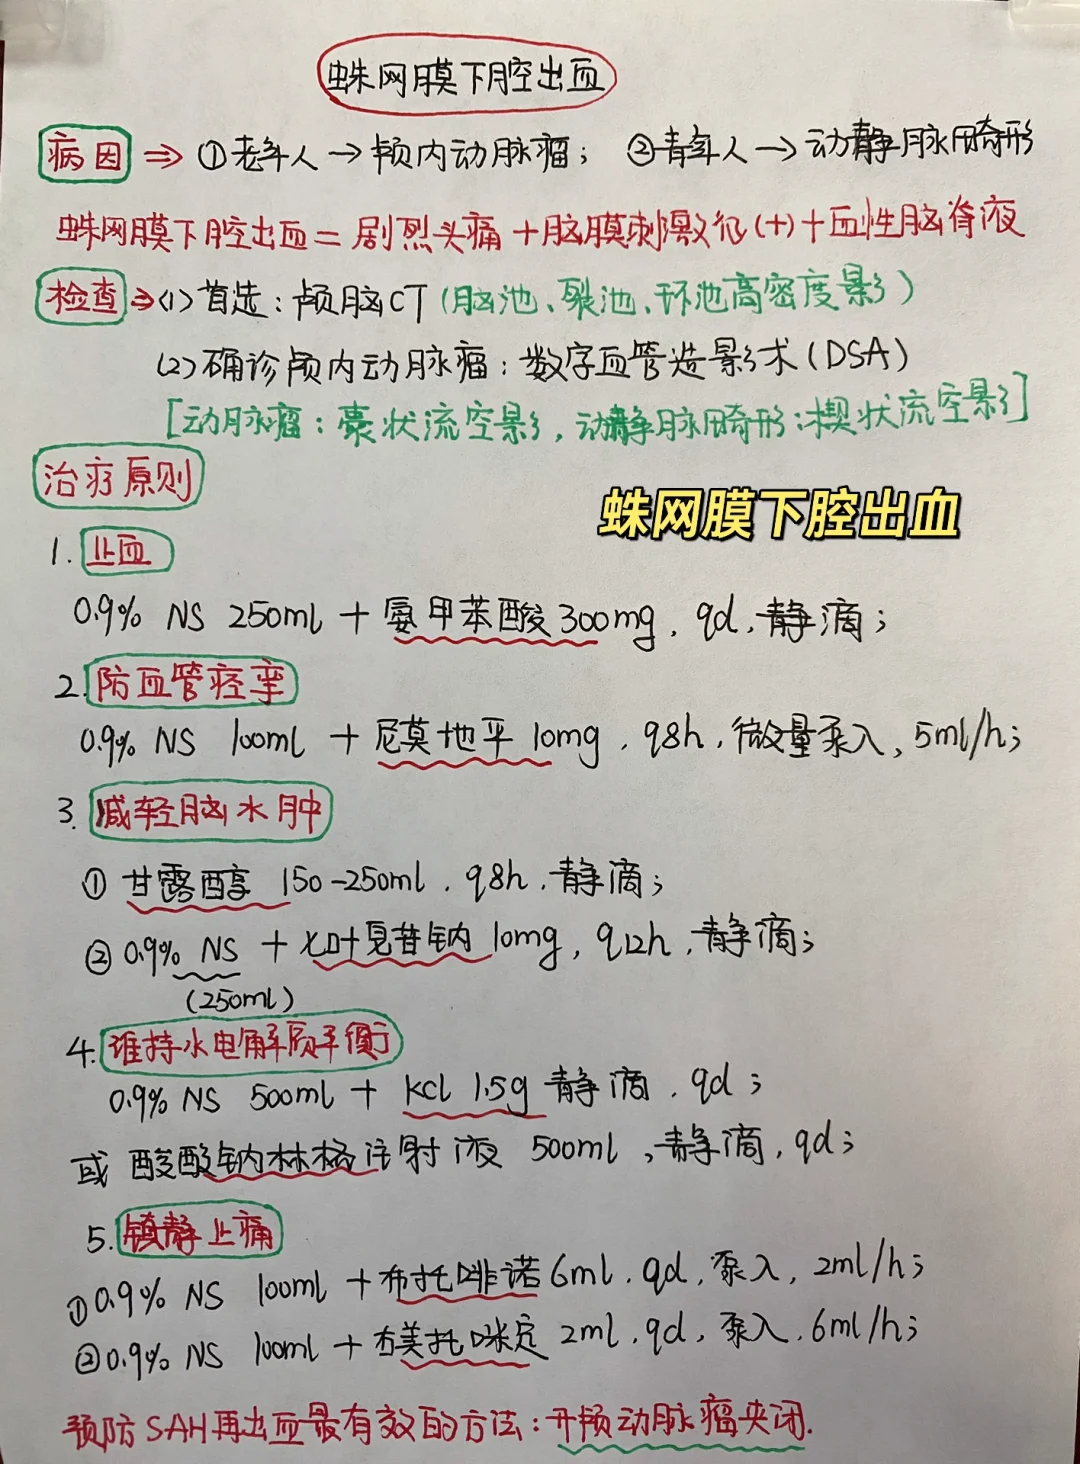 蛛网膜下腔出血
病因 ⇒ ①老年人→颅内动脉瘤； ②青年人→动静脉畸形
蛛网膜下腔出血＝剧烈头痛＋脑膜刺激征(+)＋血性脑脊液
检查⇒(1)首选：颅脑CT(脑池、裂池、环池高密度影)
(2)确诊颅内动脉瘤：数字血管造影术(DSA)
[动脉瘤：囊状流空影，动静脉畸形：楔状流空影]
治疗原则
蛛网膜下腔出血
1. 止血
0.9% NS 250ml + 氨甲苯酸300mg，qd，静滴；
2. 防血管痉挛
0.9% NS 100ml + 尼莫地平10mg，q8h，微量泵入，5ml/h；
3. 减轻脑水肿
① 甘露醇 150-250ml，q8h，静滴；
② 0.9% NS + 七叶皂苷钠10mg，q12h，静滴；
(250ml)
4. 维持水电解质平衡
0.9% NS 500ml + kcl 1.5g 静滴，qd；
或 酸钠林格注射液 500ml，静滴，qd；
5. 镇静止痛
①0.9% NS 100ml + 布托啡诺6ml，qd，泵入，2ml/h；
②0.9% NS 100ml + 美托咪定 2ml，qd，泵入，6ml/h；
预防SAH再出血最有效的方法：开颅动脉瘤夹闭.